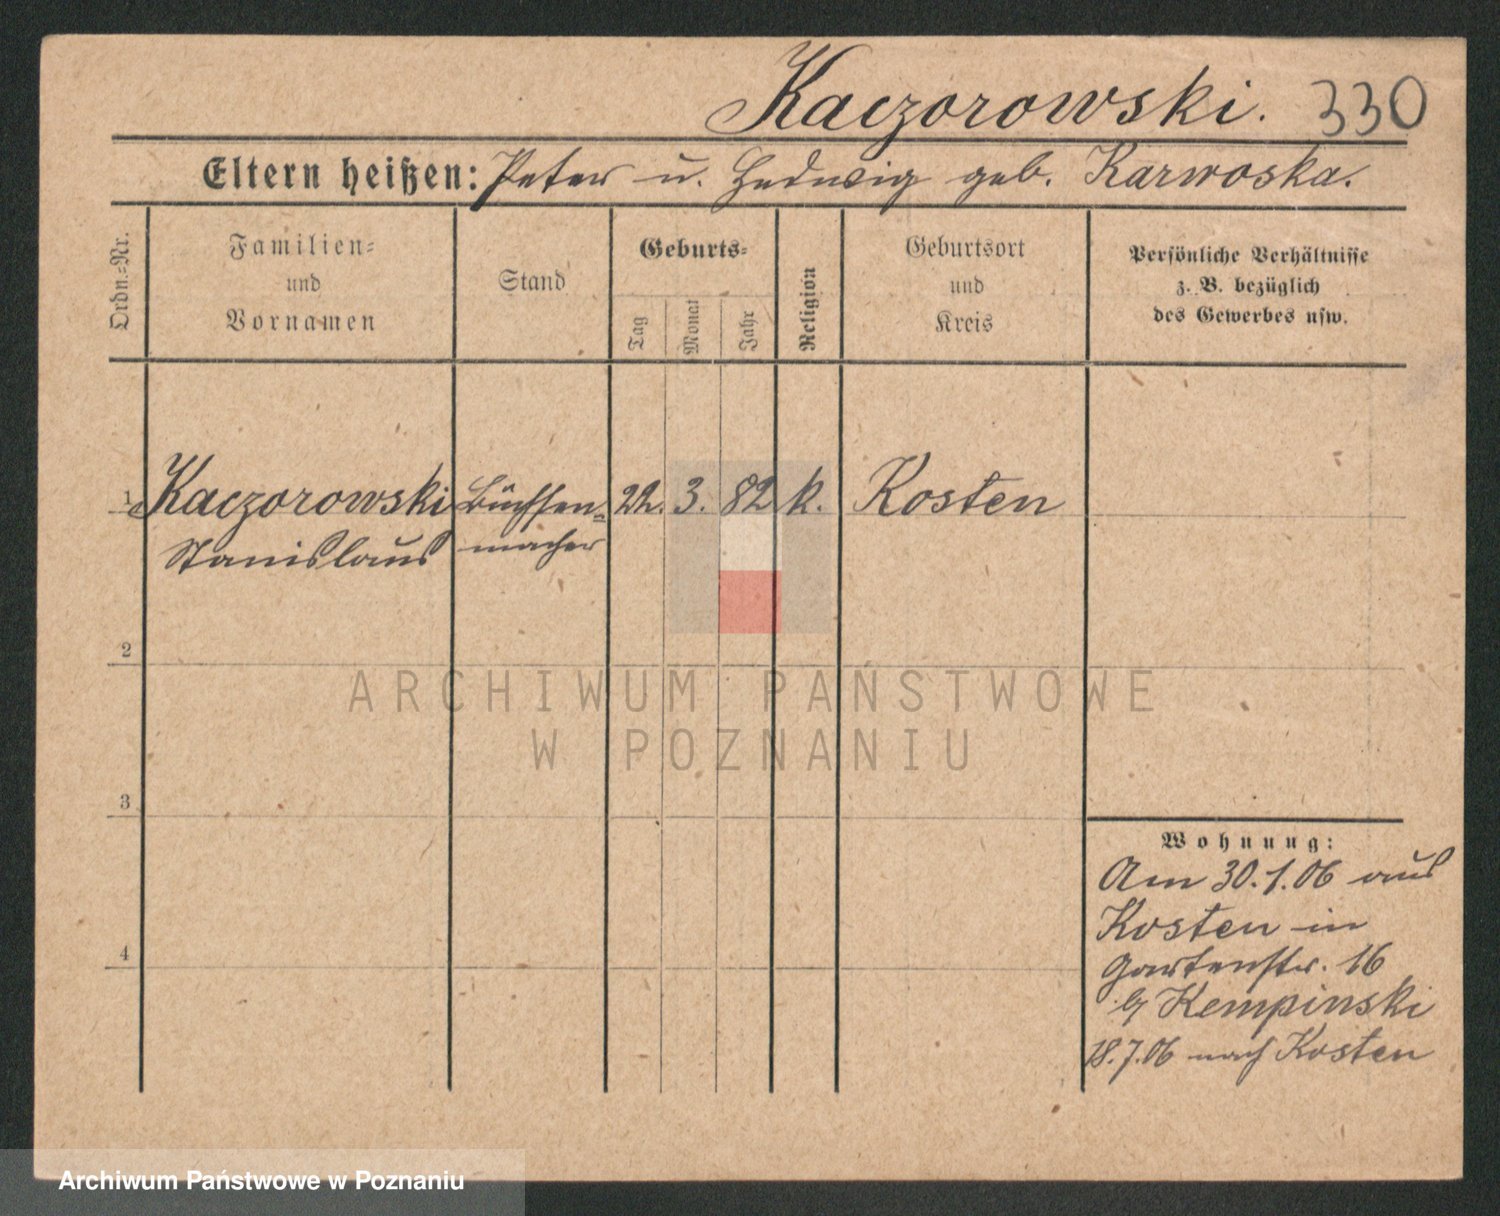 Kaczorowski. 330
Eltern heißen: Peter u. Hedwig geb. Karwoska.
Ordn.-Nr.
Familien-
und
Vornamen
Stand
Geburts-
Tag
Monat
Jahr
Religion
Geburtsort
und
Kreis
Persönliche Verhältnisse
z. B. bezüglich
des Gewerbes usw.
1 Kaczorowski Büchsen- 22. 3. 82 k. Kosten
Stanislaus macher
2
ARCHIWUM PAŃSTWOWE
W POZNANIU
3
Wohnung:
Am 30.1.06 aus
Kosten in
Gartenstr. 16
b/ Kempinski
18.7.06 nach Kosten
4
Archiwum Państwowe w Poznaniu